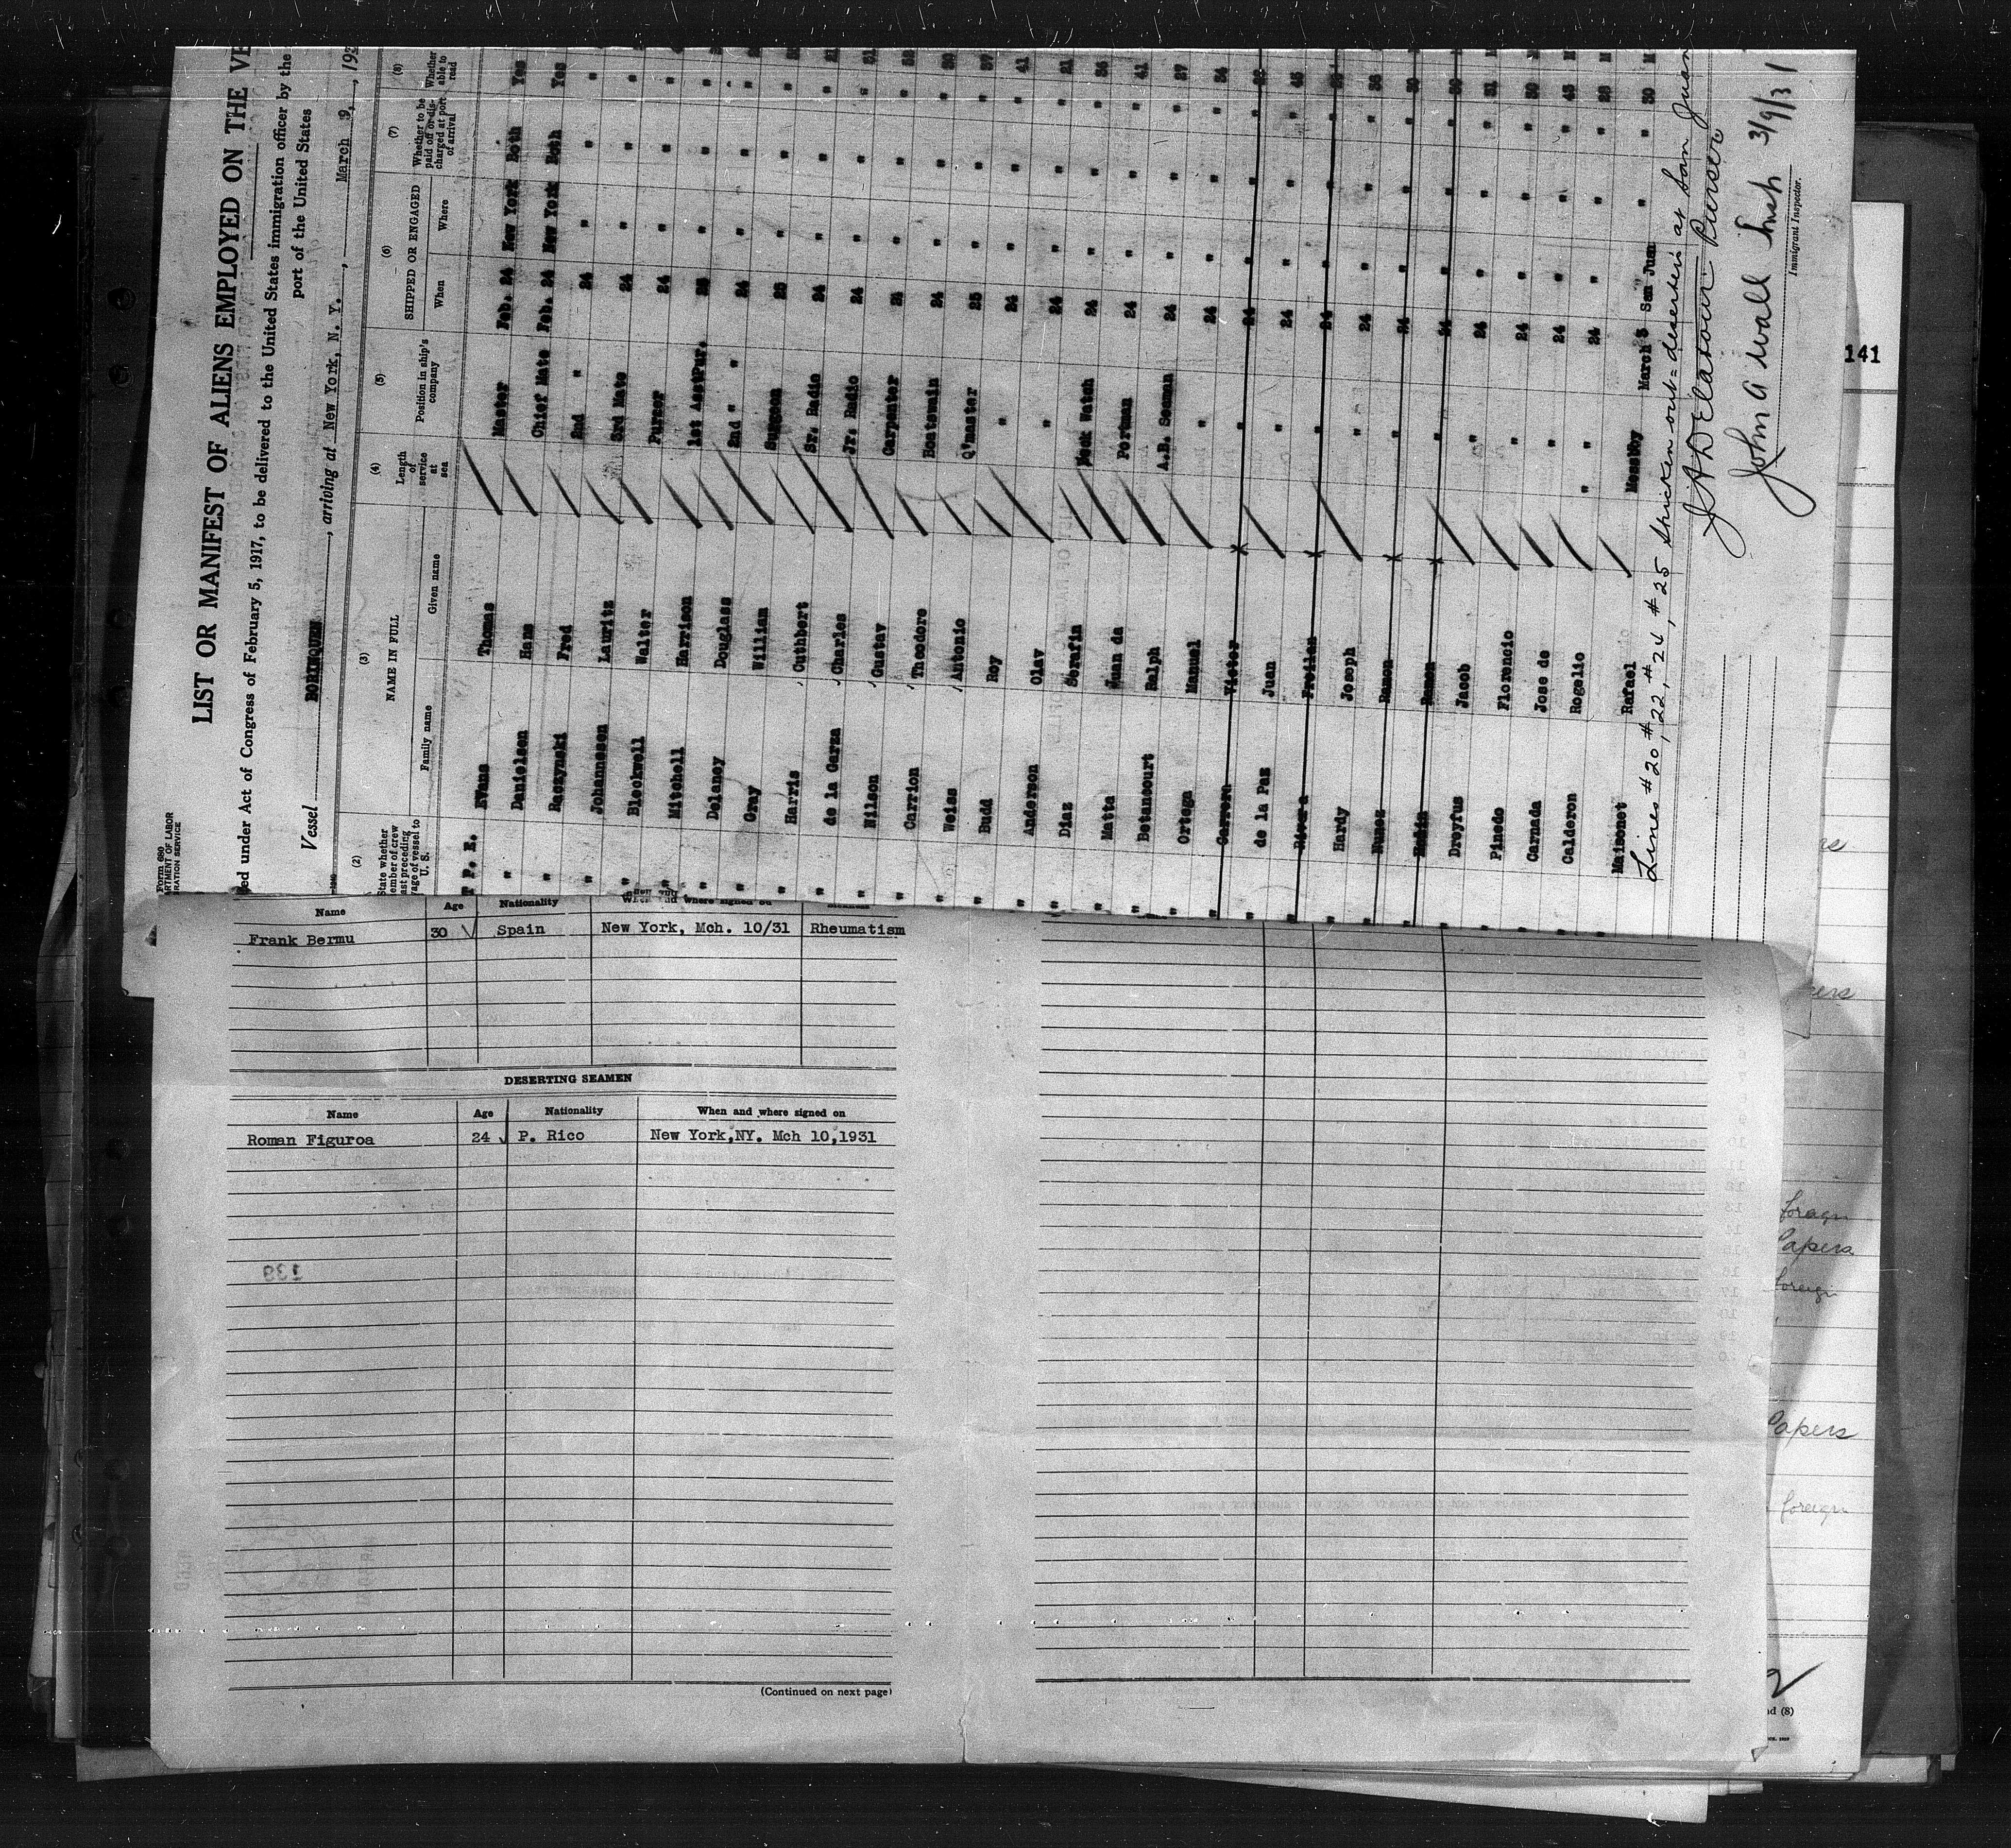 Form 680
LIST OR MANIFEST OF ALIENS EMPLOYED ON THE VE
ed under Act of Congress of February 5, 1917, to be delivered to the United States immigration officer by the
port of the United States
Vessel BORINQUEN, arriving at New York, N. Y., March 9, 193
(2) (3) (4) (5) (6) (7) (8)
NAME IN FULL
Family name Given name
Length of service at sea
Position in ship's company
SHIPPED OR ENGAGED
When Where
Whether to be paid off or discharged at port of arrival
Whether able to read
P. E. Evans Thomas Master Feb. 24 New York Both Yes
" Danielsen Hans Chief Mate Feb. 24 New York Both Yes
" Raczynski Fred 2nd " 24 " " "
" Johannesen Lauritz 3rd Mate 24 " " "
" Blockwell Walter Purser 24 " " "
" Mitchell Harrison 1st AsstPur. 25 " " "
" Delaney Douglass 2nd " " 24 " " "
" Gray William Surgeon 25 " " "
" Harris Cuthbert Sr. Radio 24 " " " 21
" de la Garza Charles Jr. Radio 24 " " " 31
" Wilson Gustav Carpenter 24 " " "
" Carrion Theodore Boatswain 24 " " "
" Weiss Antonio Q'master 25 " " "
" Budd Roy " 24 " " " 41
" Anderson Olav " 24 " " " 21
" Diaz Serafin Deck Watch 24 " " "
" Matta Juan da Portman 24 " " " 41
" Betancourt Ralph A.B. Seaman 24 " " " 27
" Ortega Manuel " 24 " " "
" Carrera Victor " 24 " " "
" de la Paz Juan " 24 " " "
" Rivera Froilan " 24 " " "
" Hardy Joseph " 24 " " "
" Nunez Ramon " 24 " " "
" Ramon " 24 " " "
" Dreyfus Jacob " 24 " " " 31 M
" Pinedo Florencio " 24 " " "
" Carnada Jose de " 24 " " "
" Calderon Rogelio " 24 " " "
Maisonet Rafael Messboy March 5 San Juan " " 30 M
Lines #20 #22, #24, #25 stricken out = deserters at San Juan
Purser
John A Wall Insp 3/9/31
Immigrant Inspector.
Name Age Nationality When and where signed on
Frank Bermu 30 Spain New York, Mch. 10/31 Rheumatism
DESERTING SEAMEN
Name Age Nationality When and where signed on
Roman Figuroa 24 P. Rico New York,NY. Mch 10,1931
139
(Continued on next page)
141
foreign
Papers
foreign
Papers
foreign